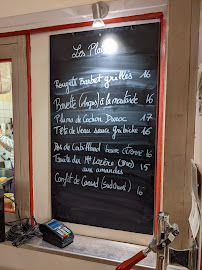 Les Plats
Rougets Barbet grillés 16
Bavette (Angus) à la moutarde 16
Pluma de Cochon Duroc 17
Tête de Veau sauce gribiche 16
Dos de Cabillaud 16
Truite du Mt Lozère
aux amandes 16
Confit de Canard 16